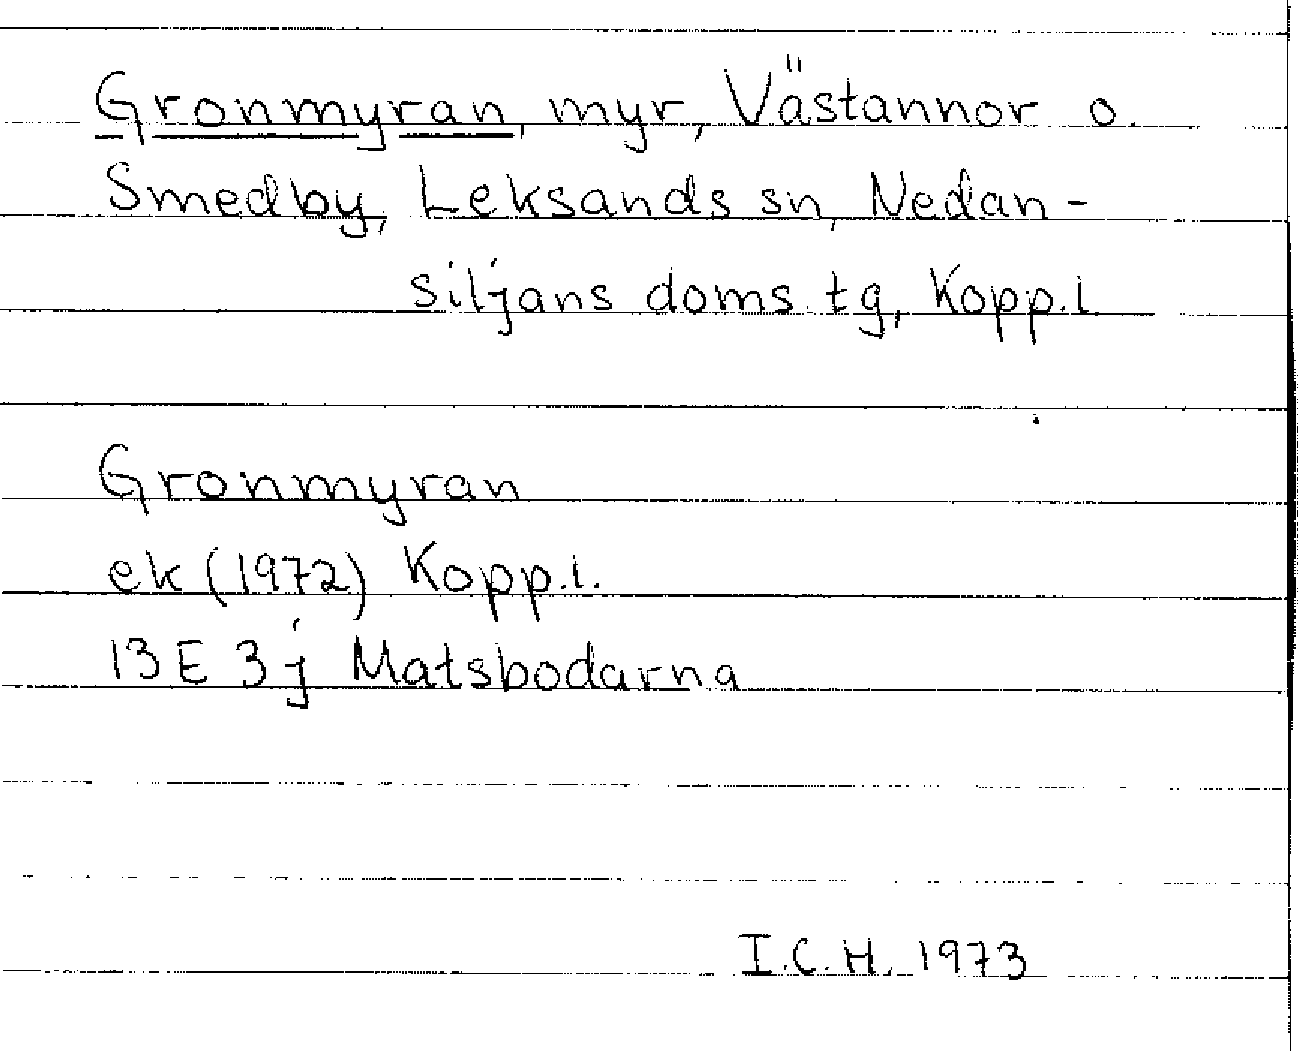 Gronmyran, myr, Västannor o.
Smedby, Leksands sn, Nedan-
siljans doms. tg, Kopp.l.
Gronmyran
ek (1972) Kopp.l.
13 E 3 j Matsbodarna
I.C.H. 1973